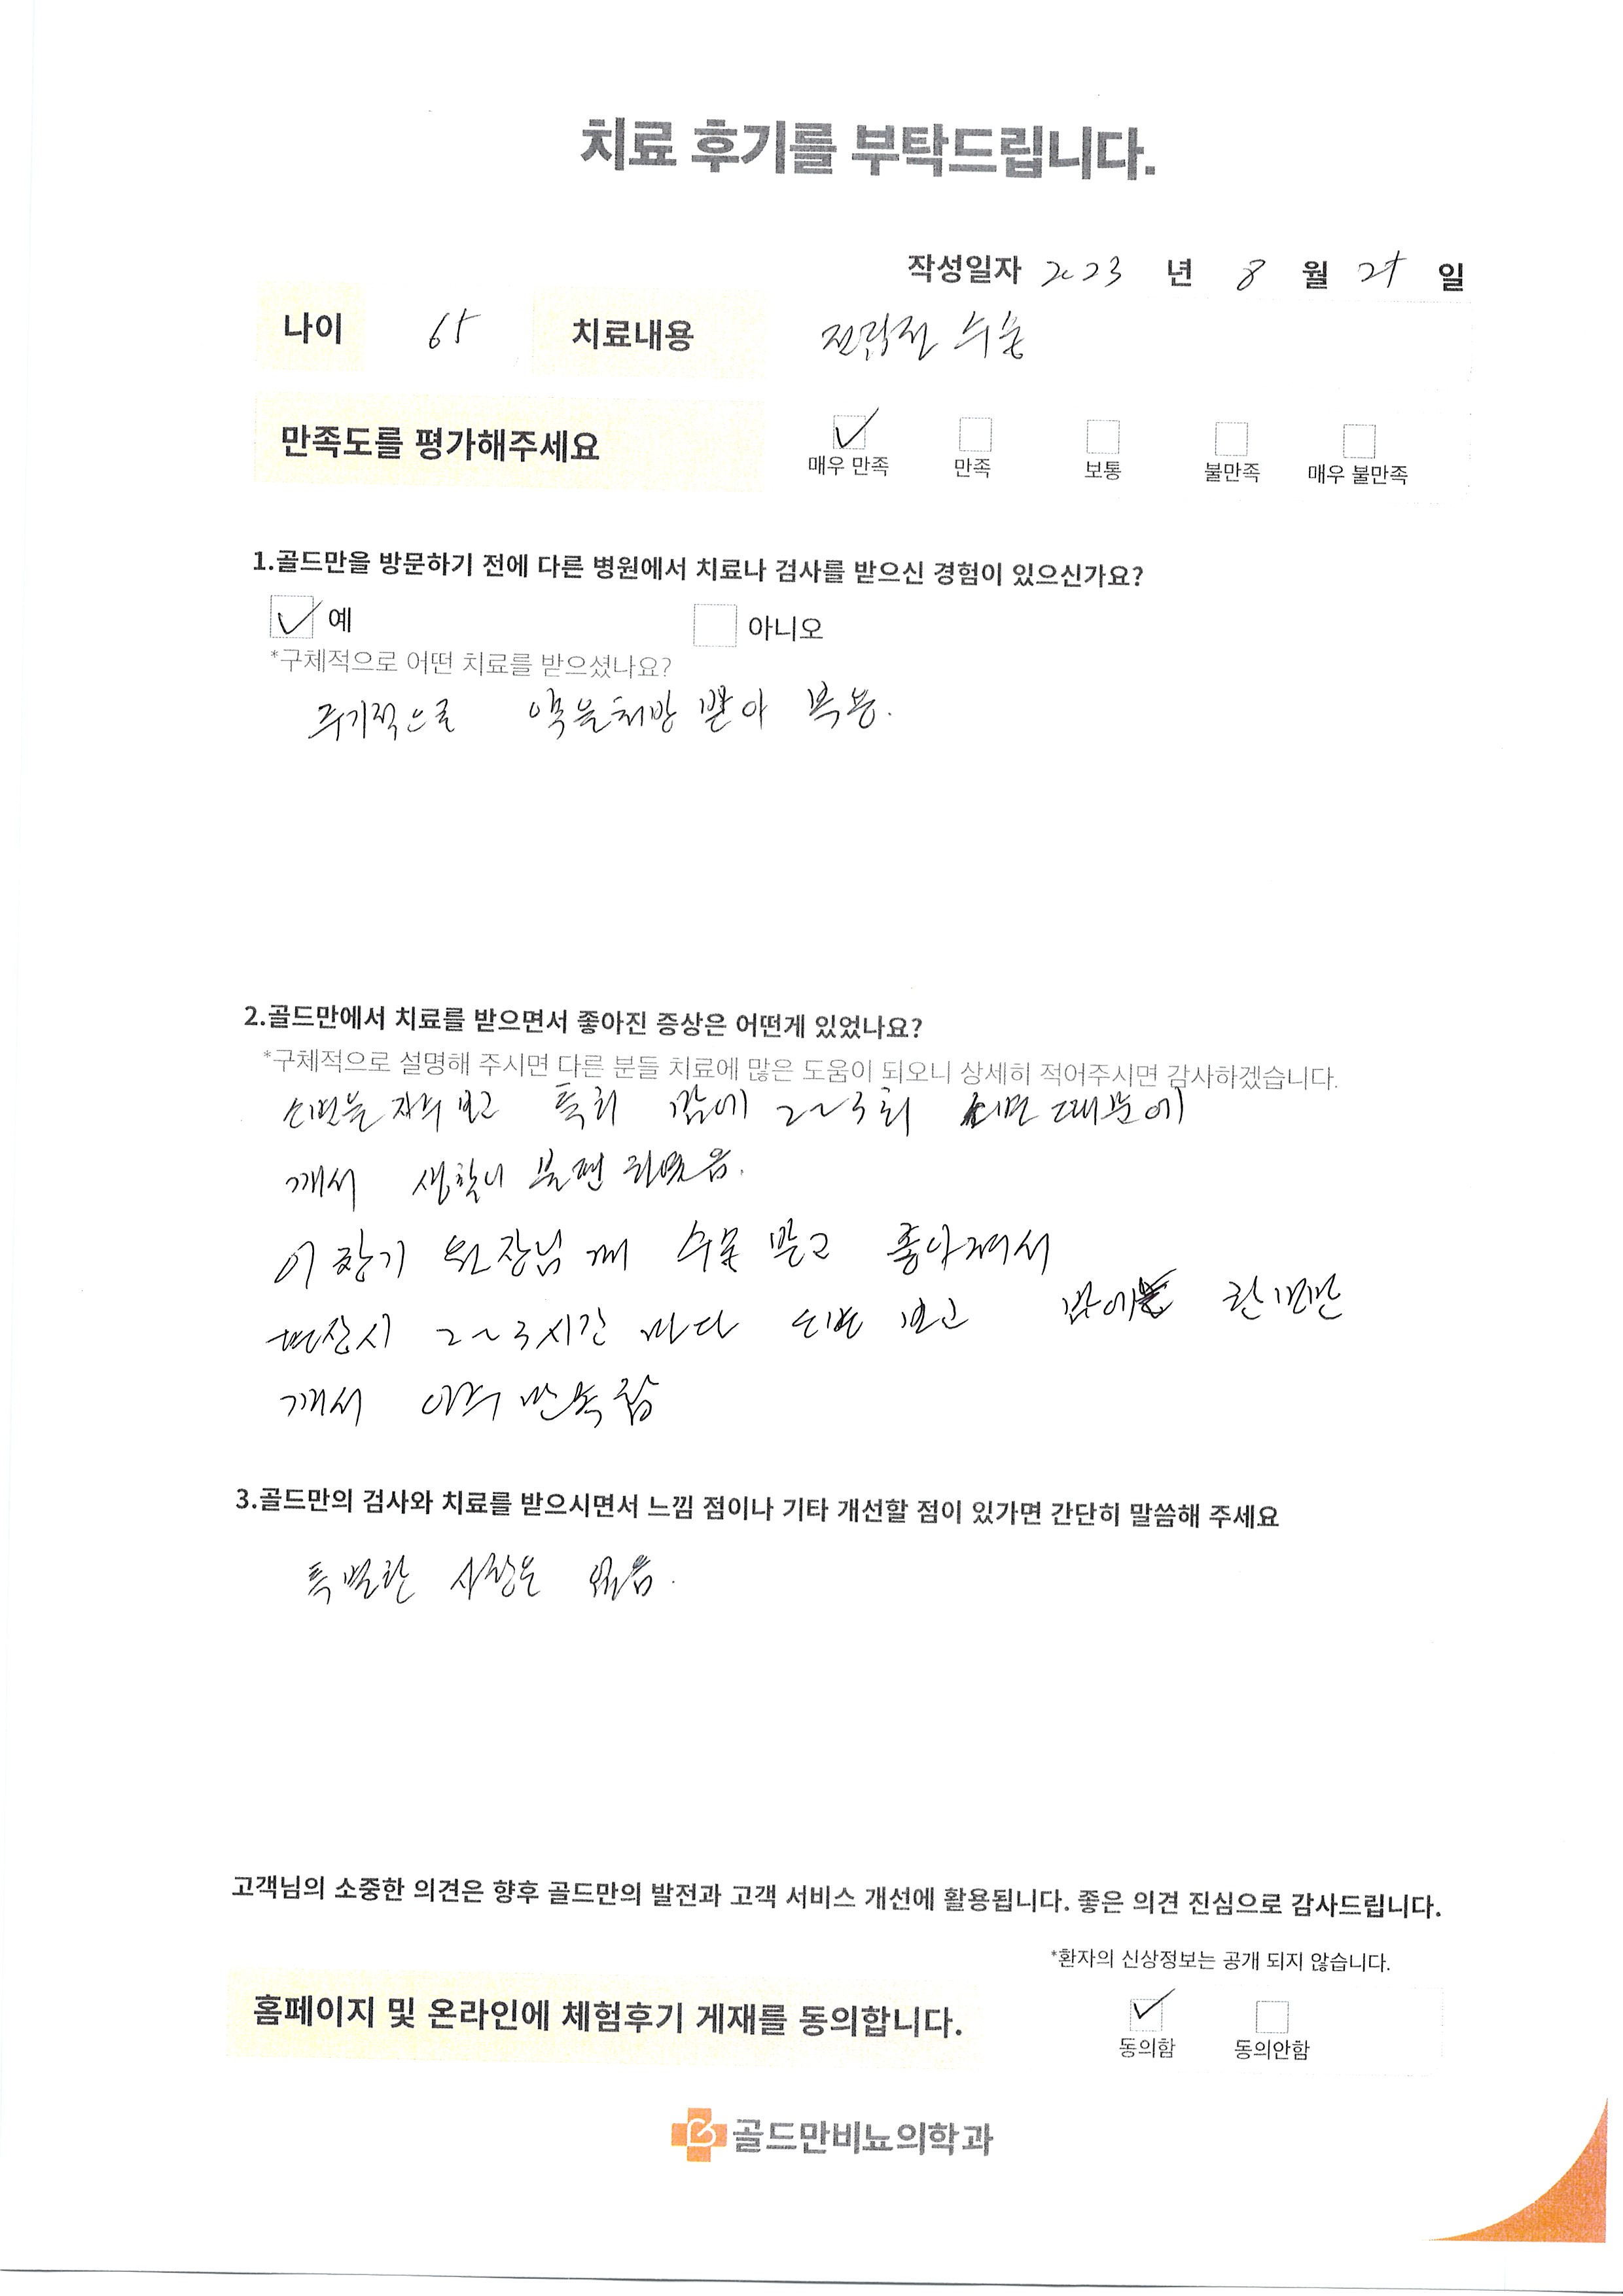 치료 후기를 부탁드립니다.
작성일자 2023 년 8 월 25 일
나이 65 치료내용 전립선 수술
만족도를 평가해주세요
매우 만족 만족 보통 불만족 매우 불만족
1.골드만을 방문하기 전에 다른 병원에서 치료나 검사를 받으신 경험이 있으신가요?
예 아니오
*구체적으로 어떤 치료를 받으셨나요?
주기적으로 약을 처방 받아 복용.
2.골드만에서 치료를 받으면서 좋아진 증상은 어떤게 있었나요?
*구체적으로 설명해 주시면 다른 분들 치료에 많은 도움이 되오니 상세히 적어주시면 감사하겠습니다.
소변을 자주 보고 특히 밤에 2~3회 소변 때문에
깨서 생활이 불편 하였음.
이창기 원장님께 수술 받고 좋아져서
2~3시간 마다 소변 보고 밤에 한번만
깨서 아주 만족함
3.골드만의 검사와 치료를 받으시면서 느낌 점이나 기타 개선할 점이 있가면 간단히 말씀해 주세요
특별한 사항은 없음.
고객님의 소중한 의견은 향후 골드만의 발전과 고객 서비스 개선에 활용됩니다. 좋은 의견 진심으로 감사드립니다.
*환자의 신상정보는 공개 되지 않습니다.
홈페이지 및 온라인에 체험후기 게재를 동의합니다.
동의함 동의안함
골드만비뇨의학과